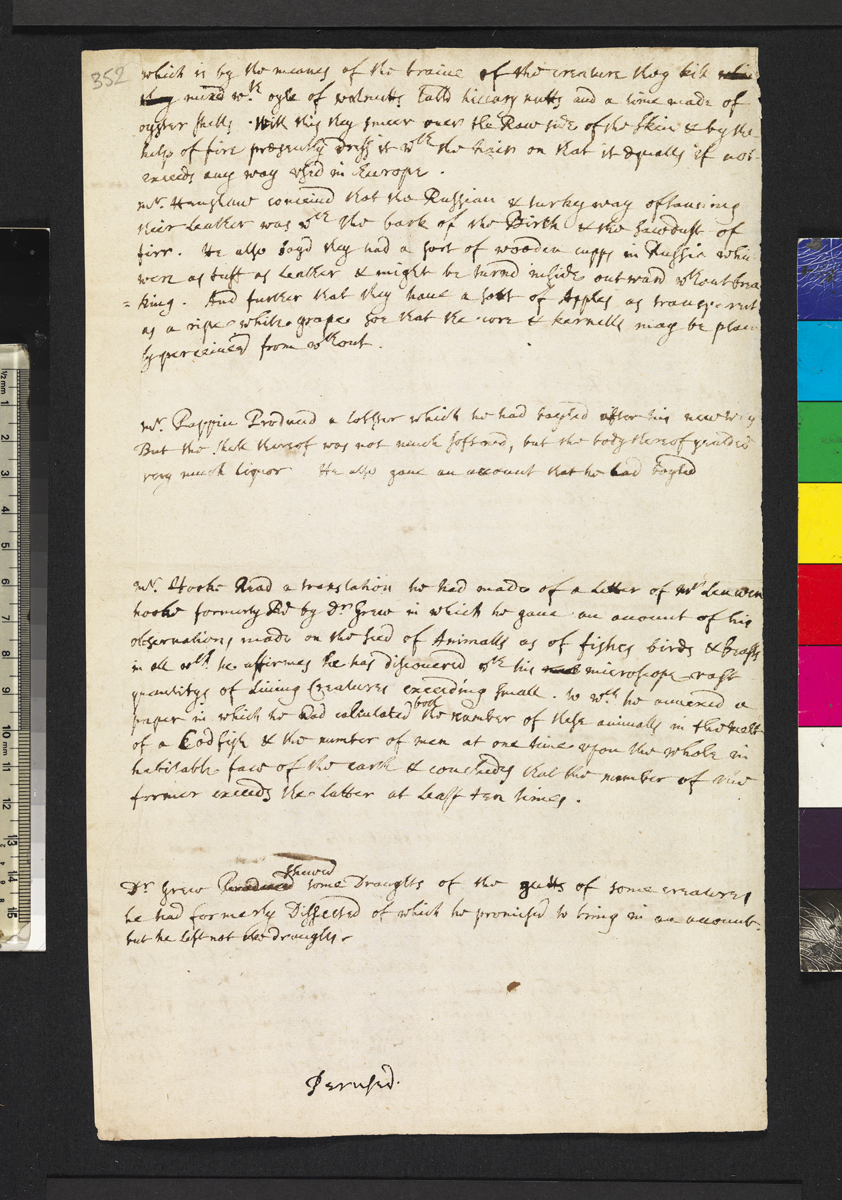 352
which is by the meanes of the braine of the creature they kill
they mixed wth oyle of walnutts Calld hiccary nutts and a lime made of
oyster shells. With this they smeer over the Raw side of the Skin & by the
help of fire presently dress it wth the hair on that it equalls if not
exceeds any way used in Europe.
Mr. Henshaw conceivd that the Russian & turky way of tanning
their Leather was wth the bark of the Birch & the sawdust of
firr. He also sayd they had a sort of wooden cupps in Russia whi
were as tuff as leather & might be turnd inside outward wthout brea
=king. And further that they have a sort of Apples as transparent
as a ripe white grape soe that the core & kernells may be plain
ly perceived from wthout.
Mr. Pappin Produced a lobster which he had boyled after his new way
But the shell thereof was not much softned, but the body thereof yeilded
very much liquor He also gave an account that he had boyled
Mr. Hooke Read a translation he had made of a letter of Mr Leuwen
hooke formerly Rd by Dr Grew in which he gave an account of his
observations made on the seed of Animalls as of fishes birds & beasts
in all wch he affirmes he has discovered wth his microscope vast
quantitys of Living Creatures exceeding small. to wch he annexed a
paper in which he had calculated both the number of these animalls in the melt
of a Codfish & the number of men at one time upon the whole in
habitable face of the earth & concludes that the number of the
former exceeds the latter at least ten times.
shewed
Dr Grew Produced some Draughts of the gutts of some creatures
he had formerly Dissected of which he promised to bring in an account.
but he left not the draughts.
Perused.
1/2 mm 1 2 3 4 5 6 7 8 9 10 mm 11 12 13 14 15